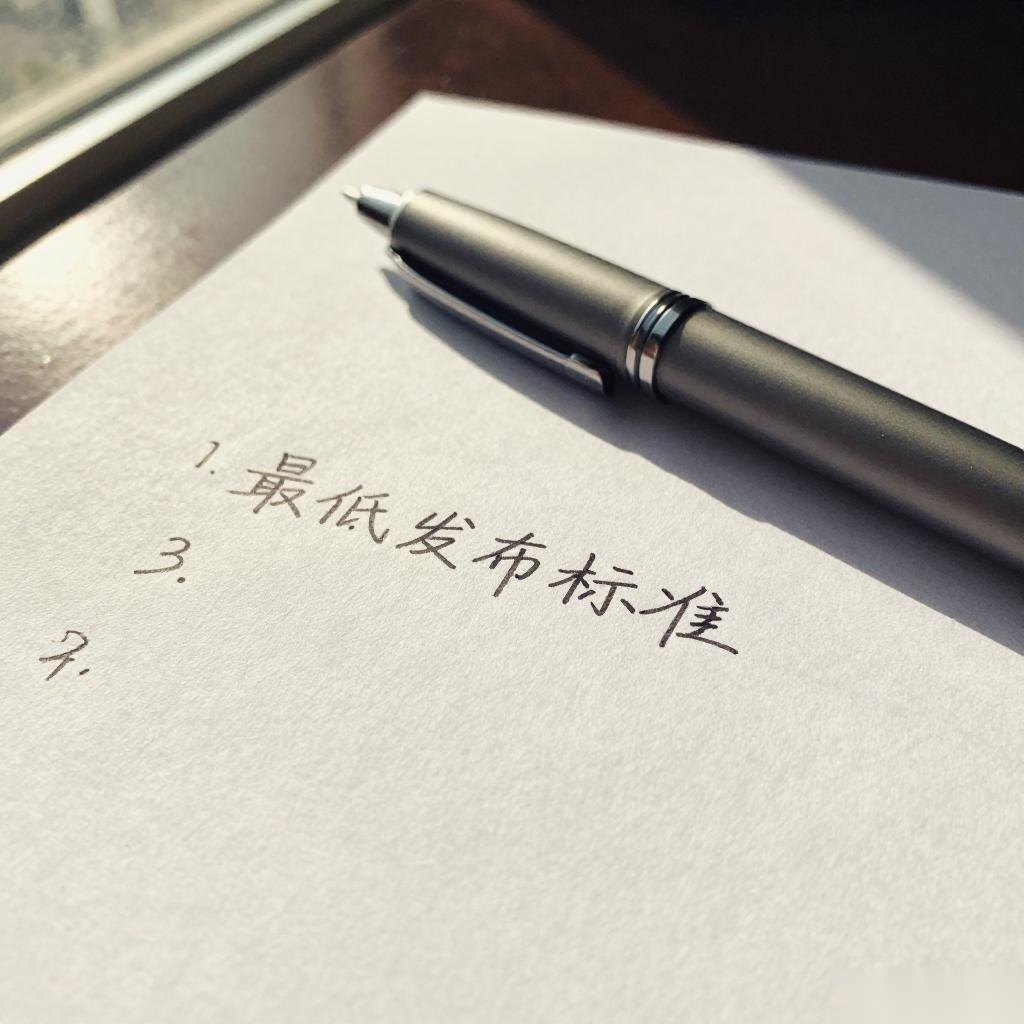 1. 最低发布标准
3.
2.